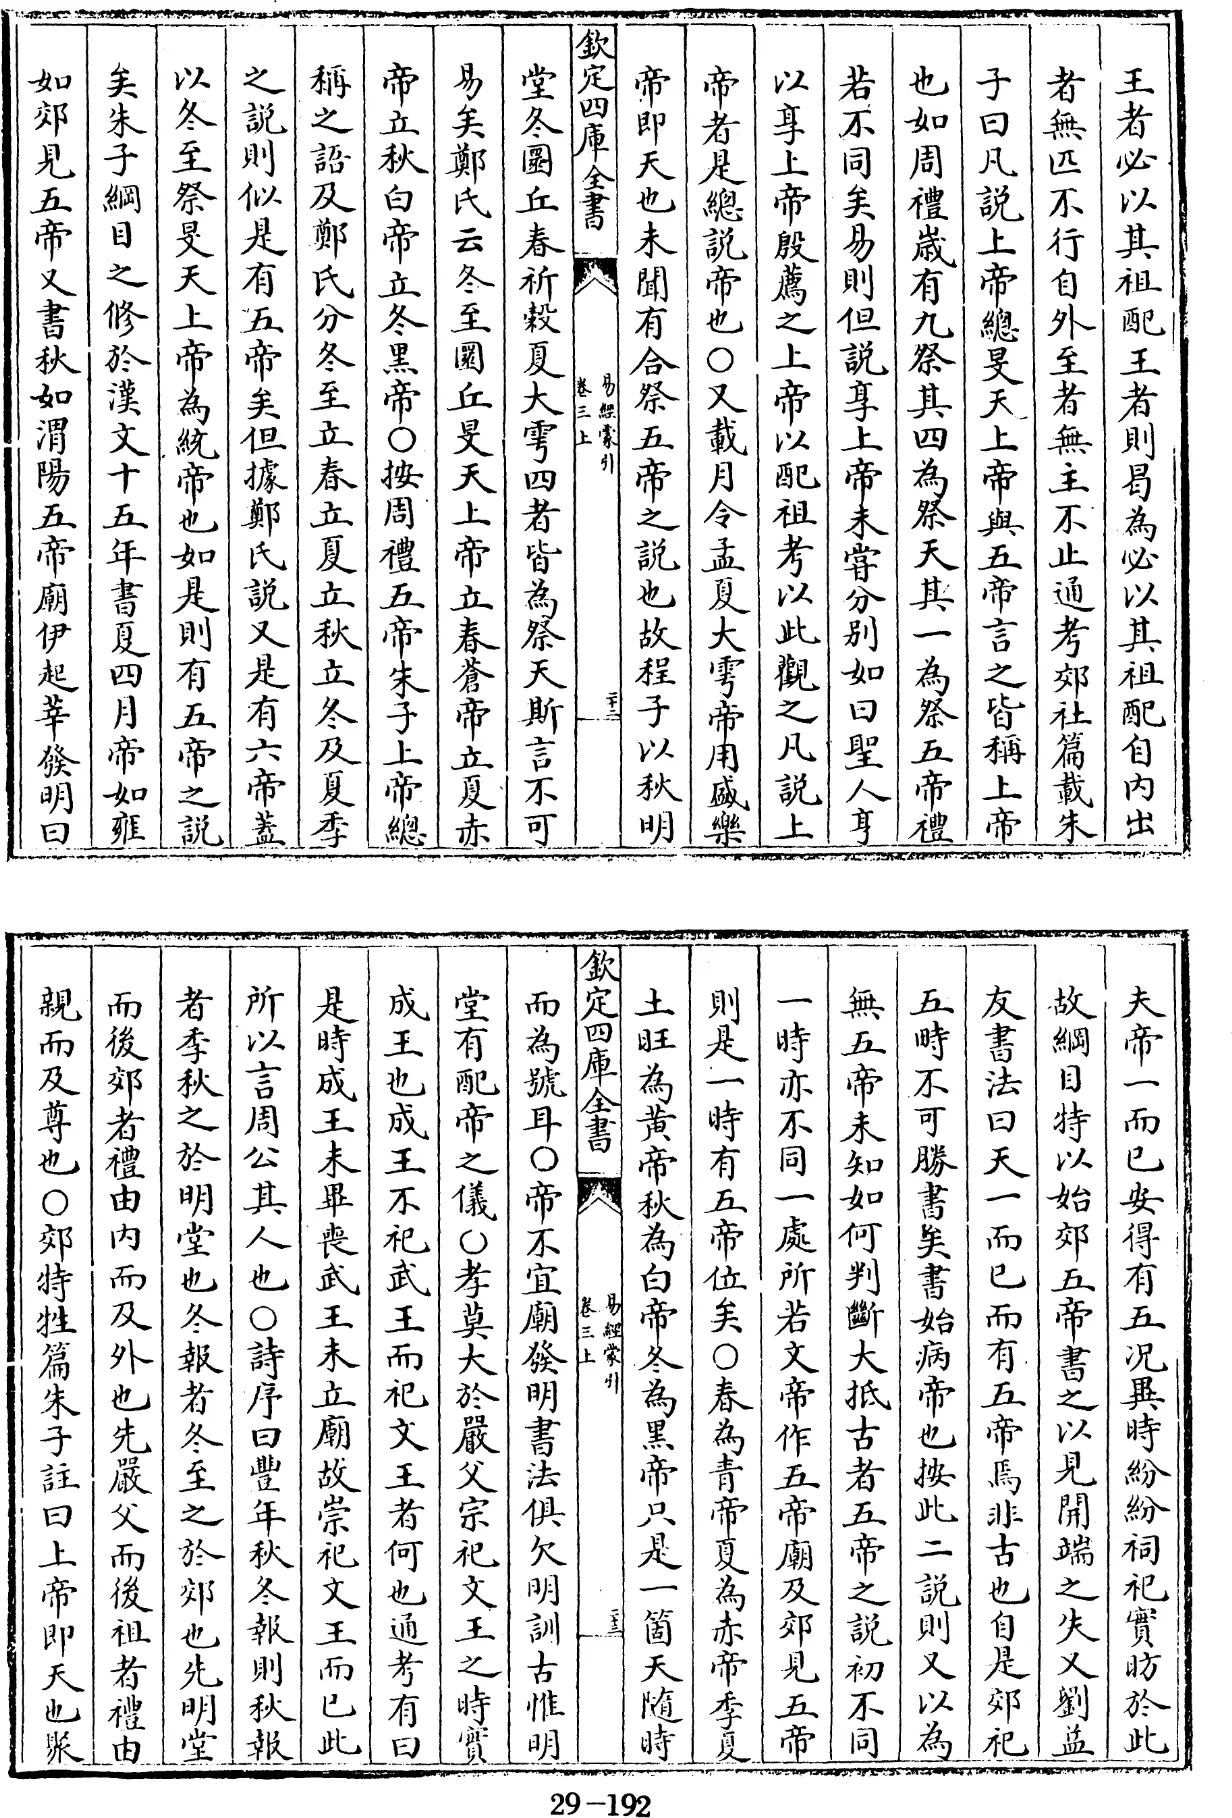 王者必以其祖配王者則曷為必以其祖配自内出
者無匹不行自外至者無主不止通考郊社篇載朱
子曰凡説上帝總旻天上帝與五帝言之皆稱上帝
也如周禮嵗有九祭其四為祭天其一為祭五帝禮
若不同矣易則但説享上帝未嘗分别如曰聖人亨
以享上帝殷薦之上帝以配祖考以此觀之凡説上
帝者是總説帝也○又載月令孟夏大雩帝用盛樂
帝即天也未聞有合祭五帝之説也故程子以秋明
欽定四庫全書
易經蒙引
卷三上
二十二
堂冬圜丘春祈榖夏大雩四者皆為祭天斯言不可
易矣鄭氏云冬至圜丘旻天上帝立春蒼帝立夏赤
帝立秋白帝立冬黒帝○按周禮五帝朱子上帝總
稱之語及鄭氏分冬至立春立夏立秋立冬及夏季
之説則似是有五帝矣但據鄭氏説又是有六帝蓋
以冬至祭旻天上帝為統帝也如是則有五帝之説
矣朱子綱目之修於漢文十五年書夏四月帝如雍
如郊見五帝又書秋如渭陽五帝廟伊起莘發明曰
夫帝一而已安得有五况異時紛紛祠祀實昉於此
故綱目特以始郊五帝書之以見開端之失又劉益
友書法曰天一而已而有五帝焉非古也自是郊祀
五畤不可勝書矣書始病帝也按此二説則又以為
無五帝未知如何判斷大抵古者五帝之説初不同
一時亦不同一處所若文帝作五帝廟及郊見五帝
則是一時有五帝位矣○春為青帝夏為赤帝季夏
土旺為黄帝秋為白帝冬為黒帝只是一箇天隨時
欽定四庫全書
易經蒙引
卷三上
二十三
而為號耳○帝不宜廟發明書法俱欠明訓古惟明
堂有配帝之儀○孝莫大於嚴父宗祀文王之時實
成王也成王不祀武王而祀文王者何也通考有曰
是時成王未畢喪武王未立廟故崇祀文王而已此
所以言周公其人也○詩序曰豐年秋冬報則秋報
者季秋之於明堂也冬報者冬至之於郊也先明堂
而後郊者禮由内而及外也先嚴父而後祖者禮由
親而及尊也○郊特牲篇朱子註曰上帝即天也聚
29-192